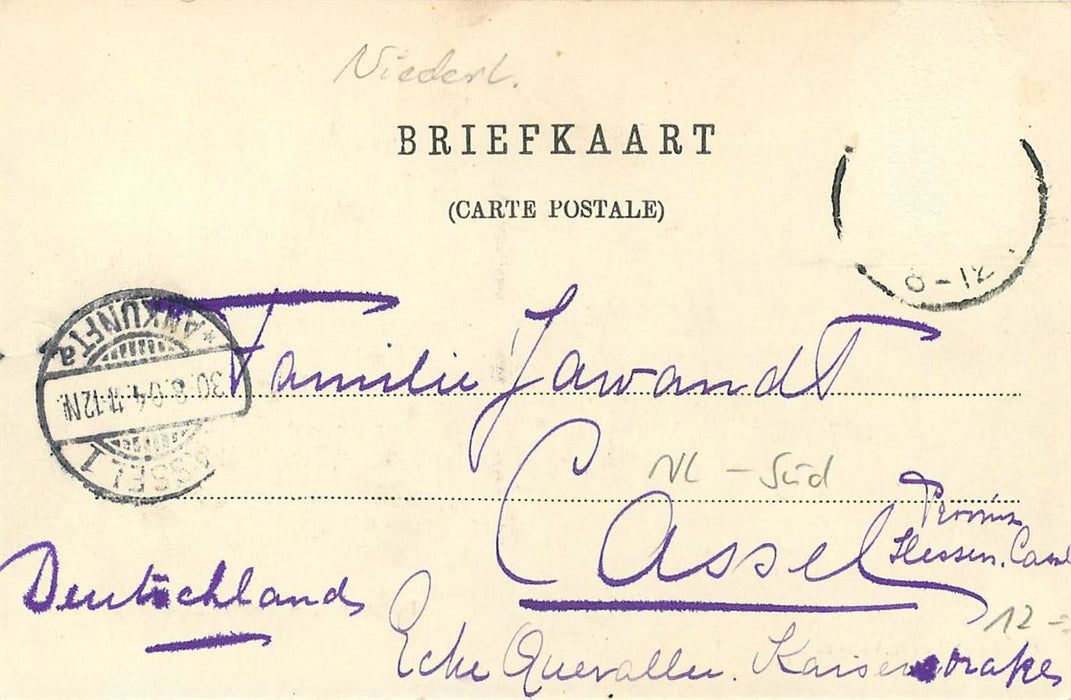 Niederl.
BRIEFKAART
(CARTE POSTALE)
8-12
*ANKUNFT a
30.8.04.11-12N.
CASSEL 1
Familie Jawandt
NL - Süd
Cassel
Provinz
Hessen. Cassel
Deutschland
12 -
Ecke Querallee. Kaiserstraße